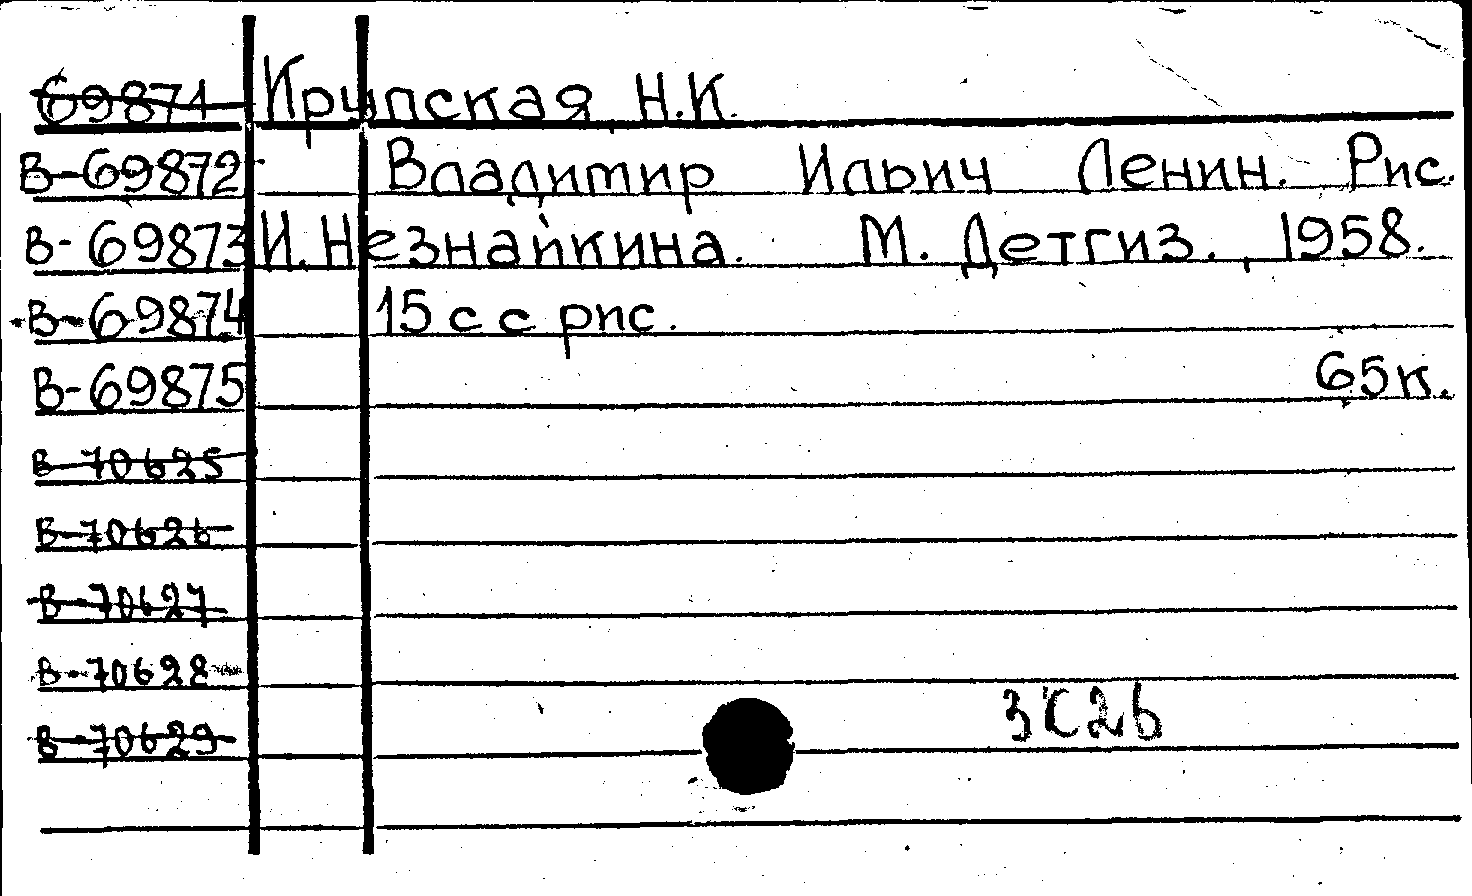 69871 Крупская Н.К.
В-69872 Владимир Ильич Ленин. Рис.
В-69873 И. Незнайкина. М. Детгиз., 1958.
В-69874 15 с с рис.
В-69875 65к.
В-70625
В-70626
В-70627
В-70628
В-70629 3С26